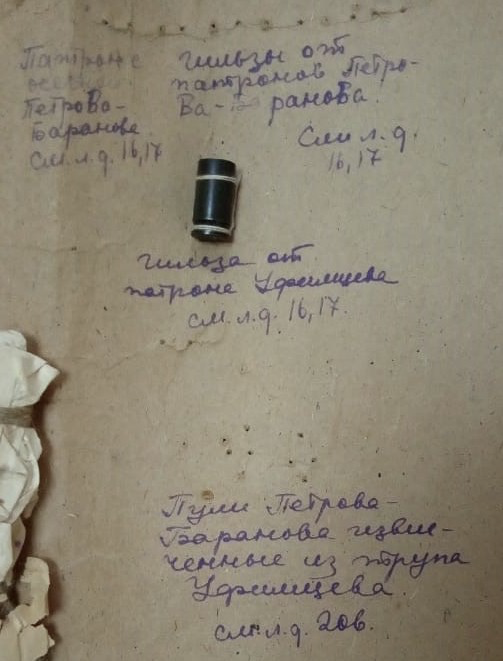 Патрон с
Петрова-
Баранова.
См. л. д. 16, 17
гильзы от
патронов Петро-
ва-Баранова.
См. л. д.
16, 17
гильза от
патрона Уфимцева
см. л. д. 16, 17.
Пули Петрова-
Баранова извле-
ченные из трупа
Уфимцева.
см. л. д. 20в.